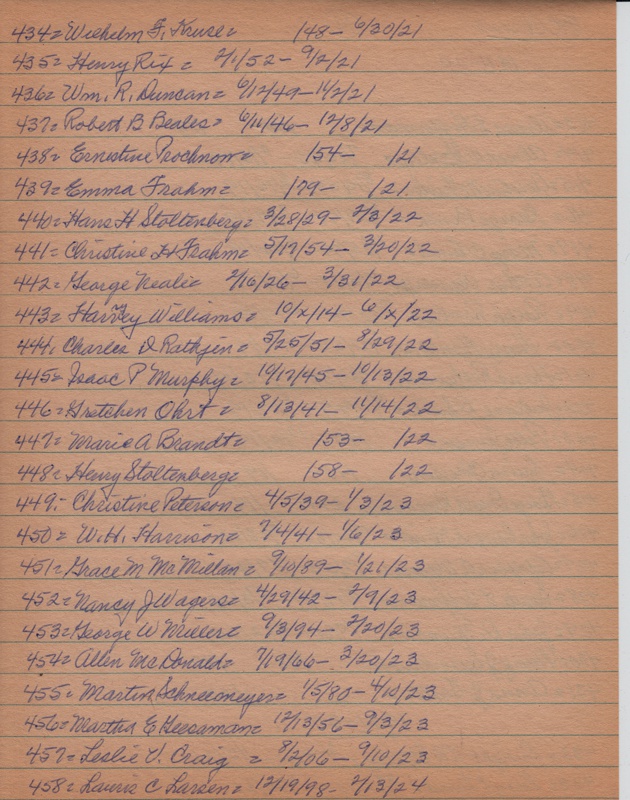 434= Wilhelm F. Kruse= /48- 6/30/21
435= Henry Rix = 2/1/52- 9/2/21
436= Wm. R. Duncan= 6/12/49-11/2/21
437= Robert B Beales= 6/11/46- 12/8/21
438= Ernestine Prochnow= /54- /21
439= Emma Frahm= /79- /21.
440= Hans H Stoltenberg= 3/28/29- 2/3/22
441= Christine H Frahm= 5/19/54- 3/20/22
442= George Nealie= 2/16/26- 3/31/22
443= Harvey Williams= 10/x/14- 6/x/22
444. Charles D Rathjen= 5/25/51- 8/29/22
445= Isaac P Murphy= 10/17/45- 10/13/22
446= Gretchen Ohrt= 8/13/41- 11/14/22
447= Marie A Brandt= /53- /22
448= Henry Stoltenberg= /58- /22
449.- Christine Peterson= 4/5/39- 1/3/23
450= W.H. Harrison= 7/4/41- 1/6/23
451= Grace M McMillan= 9/10/89- 1/21/23
452= Nancy J Wagers= 4/29/42- 2/9/23
453= George W Miller= 9/3/94- 2/20/23
454= Allen McDonald= 7/19/66- 3/20/23
455= Martin Schneemeyer= 1/5/80- 4/10/23
456= Martha E Geesaman= 12/13/56- 9/3/23
457= Leslie V. Craig = 8/2/06- 9/10/23
458= Lauris C Larsen= 12/19/98- 2/13/24